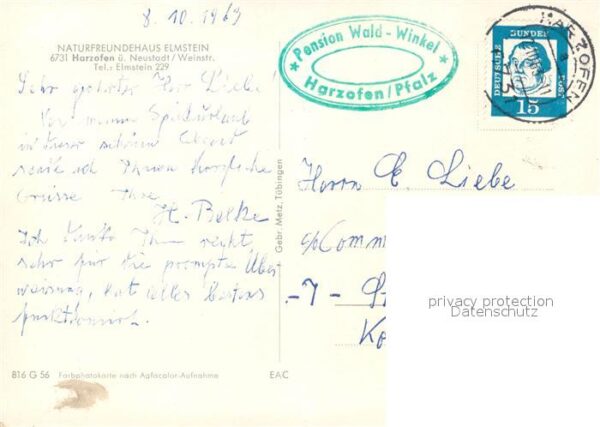 8.10.1963
NATURFREUNDEHAUS ELMSTEIN
6731 Harzofen ü. Neustadt / Weinstr.
Tel.: Elmstein 229
Sehr geehrter Herr Liebe!
Spätурlaub
in dieser schönen
Ihnen herzliche
Grüsse Ihre
H. Belke
Ich danke Ihnen recht
sehr für die prompte Über-
weisung, hat alles bestens
funktioniert.
816 G 56 Farbphotokarte nach Agfacolor-Aufnahme EAC
Gebr. Metz, Tübingen
* Pension Wald-Winkel *
Harzofen/Pfalz
DEUTSCHE BUNDESPOST
15
HARZOFEN
Herrn E. Liebe
c/o Comm
-7- St
Ko
privacy protection
Datenschutz